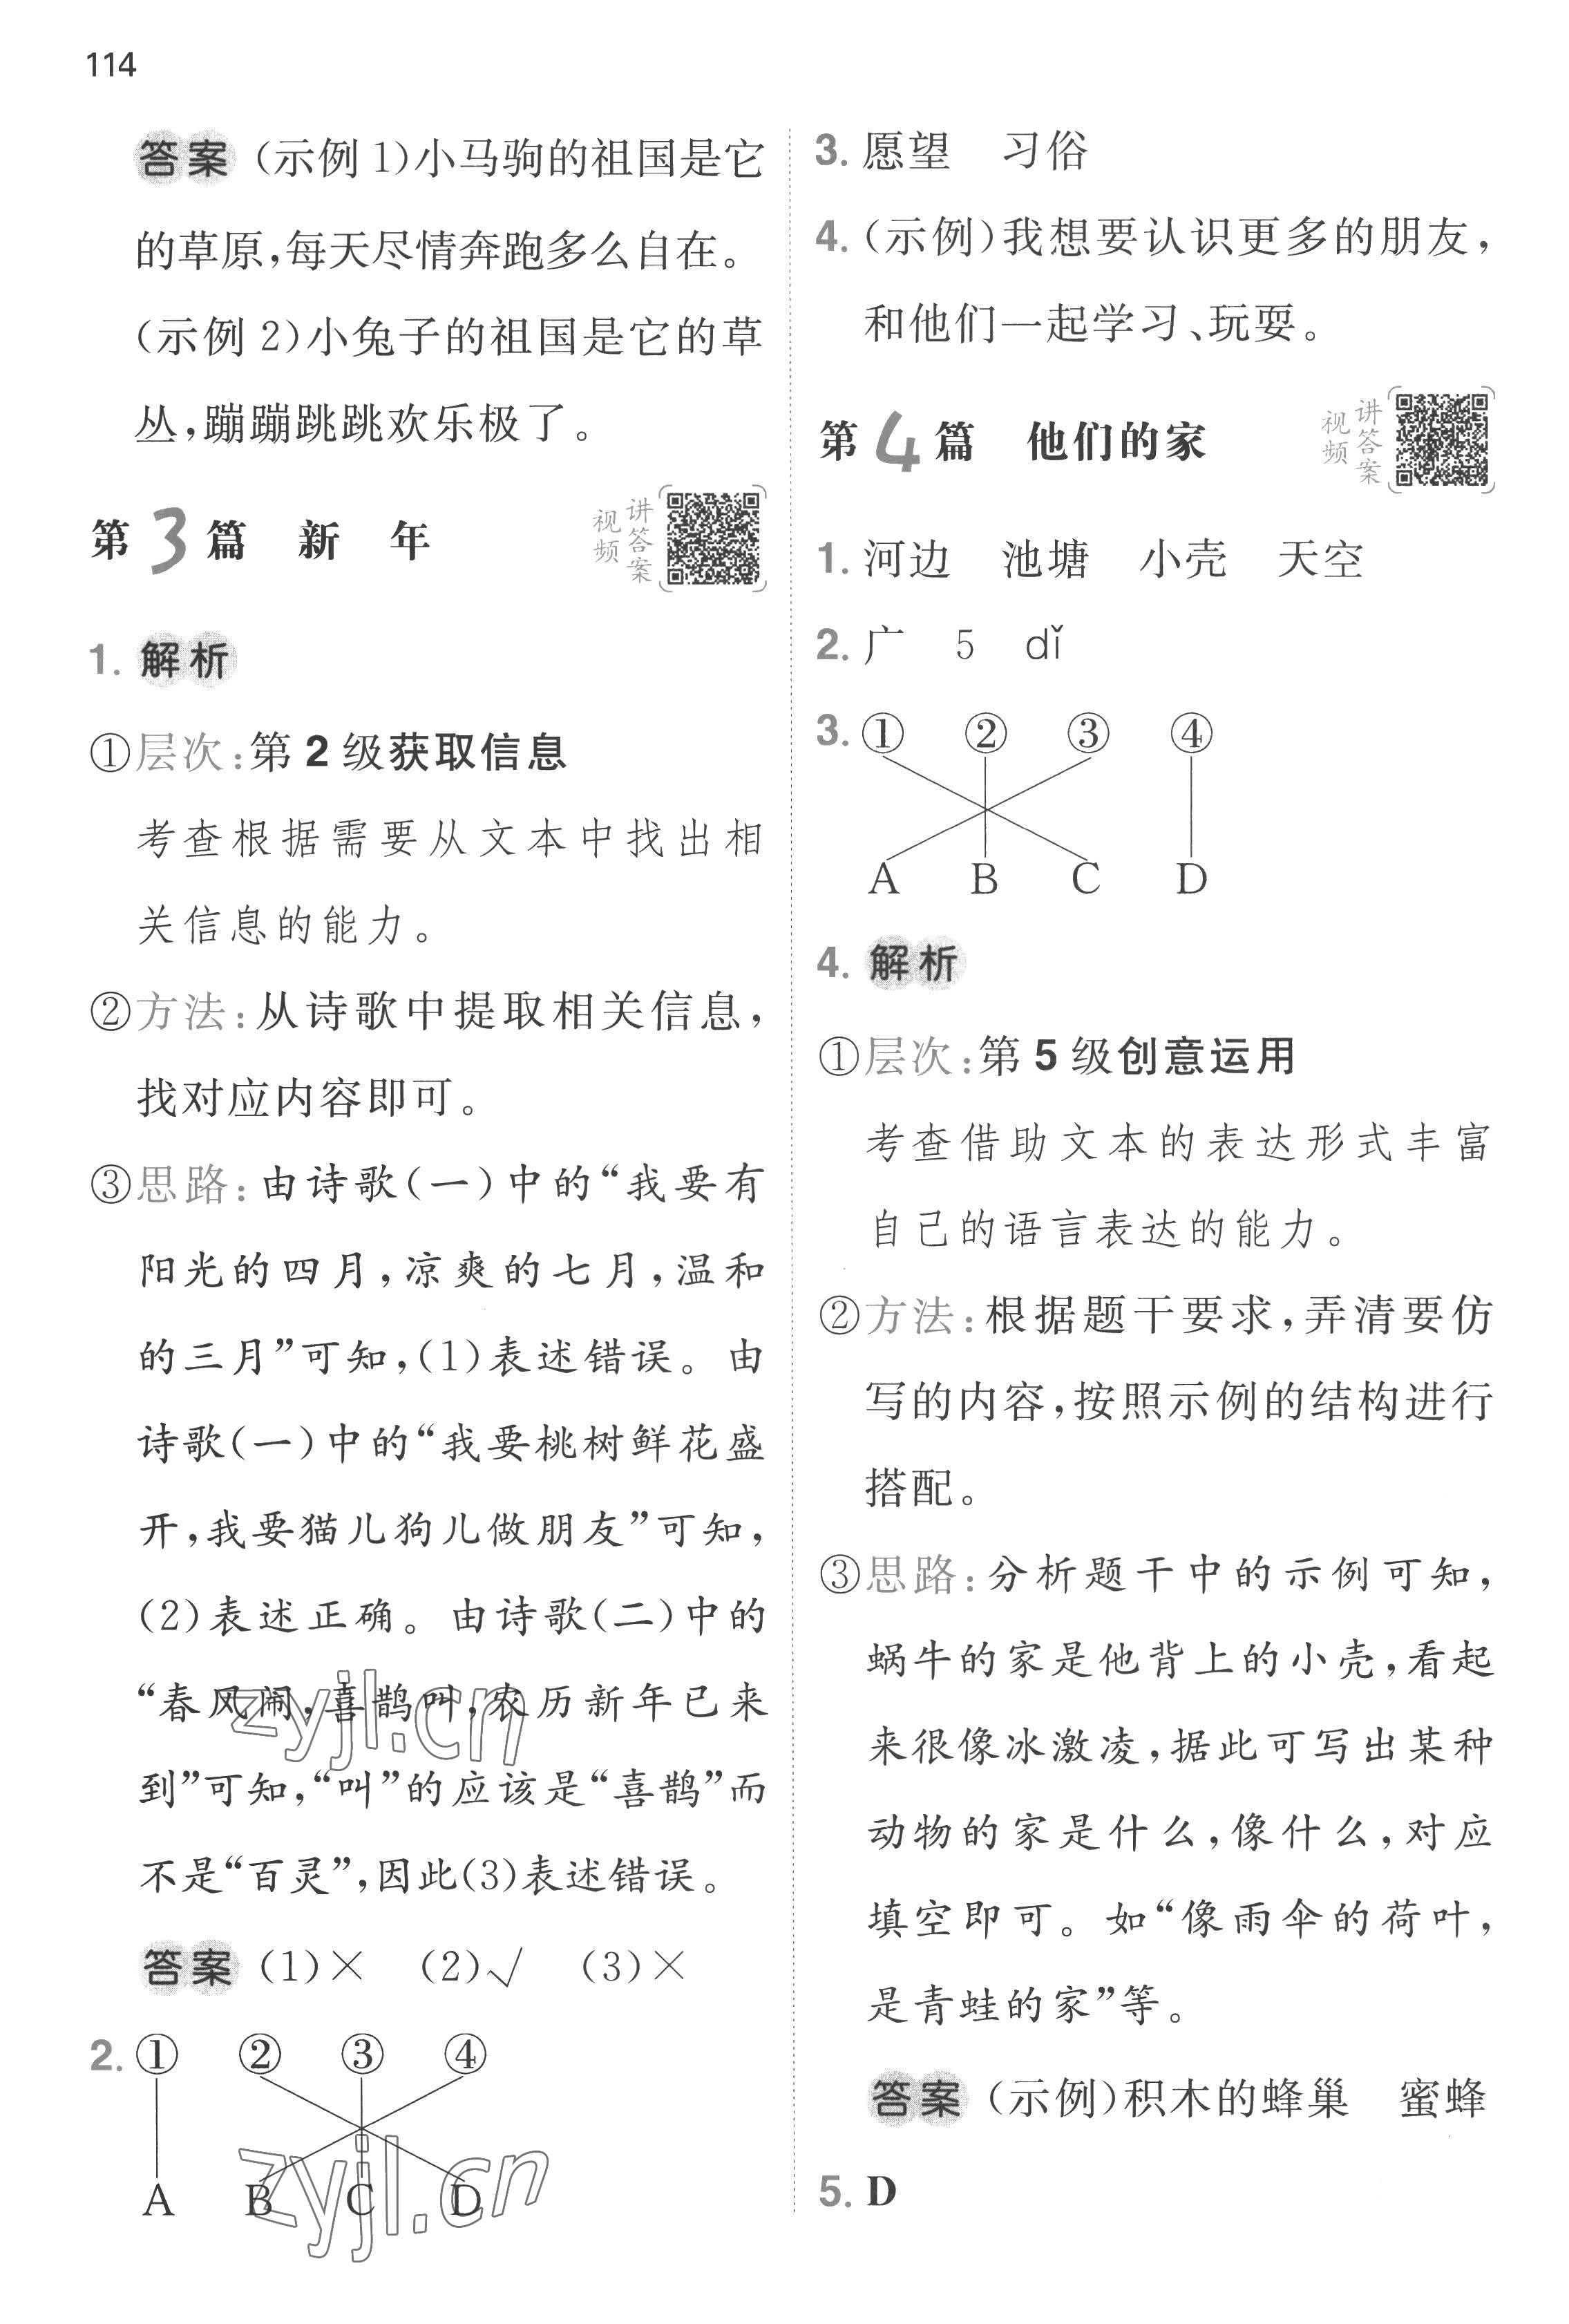 114
答案 (示例 1)小马驹的祖国是它
的草原,每天尽情奔跑多么自在。
(示例 2)小兔子的祖国是它的草
丛,蹦蹦跳跳欢乐极了。
第3篇 新 年
视频讲答案
1. 解析
①层次:第 2 级获取信息
考查根据需要从文本中找出相
关信息的能力。
②方法:从诗歌中提取相关信息,
找对应内容即可。
③思路:由诗歌(一)中的“我要有
阳光的四月,凉爽的七月,温和
的三月”可知,(1)表述错误。由
诗歌(一)中的“我要桃树鲜花盛
开,我要猫儿狗儿做朋友”可知,
(2)表述正确。由诗歌(二)中的
“春风闹,喜鹊叫,农历新年已来
到”可知,“叫”的应该是“喜鹊”而
不是“百灵”,因此(3)表述错误。
答案 (1)× (2)√ (3)×
2. ① ② ③ ④
A B C D
zyjl.cn
zyjl.cn
3. 愿望 习俗
4. (示例)我想要认识更多的朋友,
和他们一起学习、玩耍。
第4篇 他们的家
视频讲答案
1. 河边 池塘 小壳 天空
2. 广 5 dǐ
3. ① ② ③ ④
A B C D
4. 解析
①层次:第 5 级创意运用
考查借助文本的表达形式丰富
自己的语言表达的能力。
②方法:根据题干要求,弄清要仿
写的内容,按照示例的结构进行
搭配。
③思路:分析题干中的示例可知,
蜗牛的家是他背上的小壳,看起
来很像冰激凌,据此可写出某种
动物的家是什么,像什么,对应
填空即可。如“像雨伞的荷叶,
是青蛙的家”等。
答案 (示例)积木的蜂巢 蜜蜂
5. D